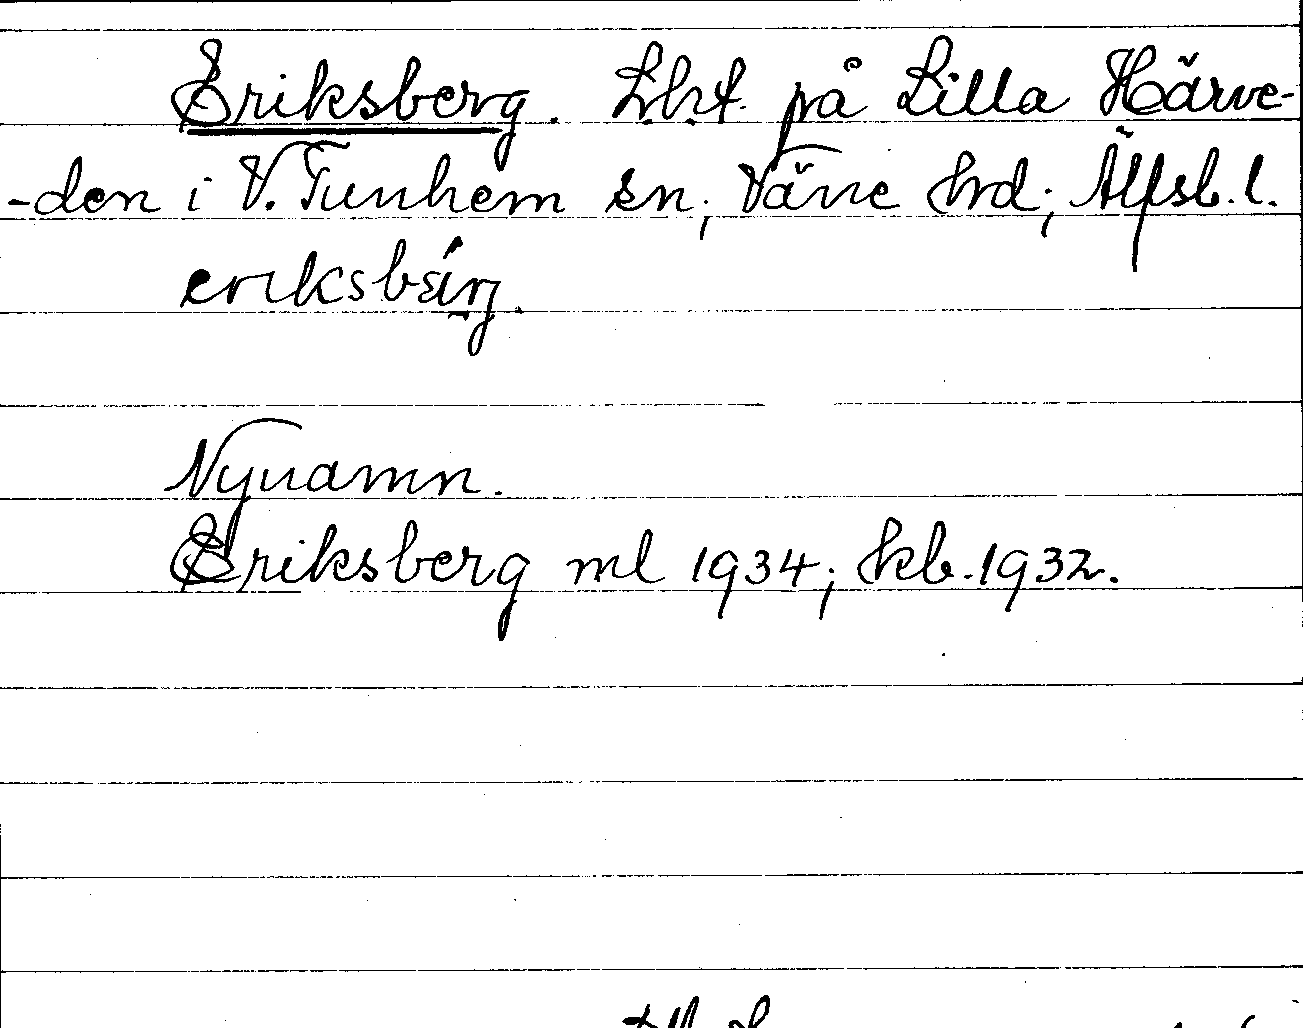 Eriksberg. Lht. på Lilla Härve-
-den i V. Tunhem sn; Väne hrd; Älfsb. l.
Nynamn.
Eriksberg ml 1934; kb. 1932.